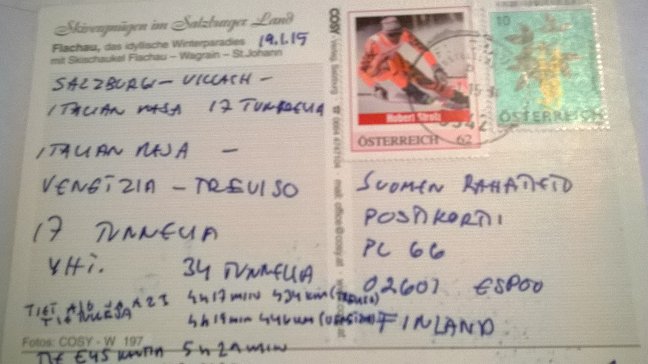 Skivergnügen im Salzburger Land
Flachau, das idyllische Winterparadies
mit Skischaukel Flachau – Wagrain – St. Johann
19.1.15
SALZBURG – VILLACH –
ITALIAN RAJA 17 TUNNELIA
ITALIAN RAJA –
VENETZIA – TREVISO
17 TUNNELIA
YHT. 34 TUNNELIA
TIET A10 JA A23 4H17MIN 434KM
4H19MIN 446KM
TIE E45 5H21MIN
Fotos: COSY - W 197
COSY Verlag, Salzburg
mail: office@cosy.at
www.cosy.at
Hubert Strolz
ÖSTERREICH 62
10
ÖSTERREICH
SUOMEN RAHATIETO
POSTIKORTTI
PL 66
02601 ESPOO
FINLAND